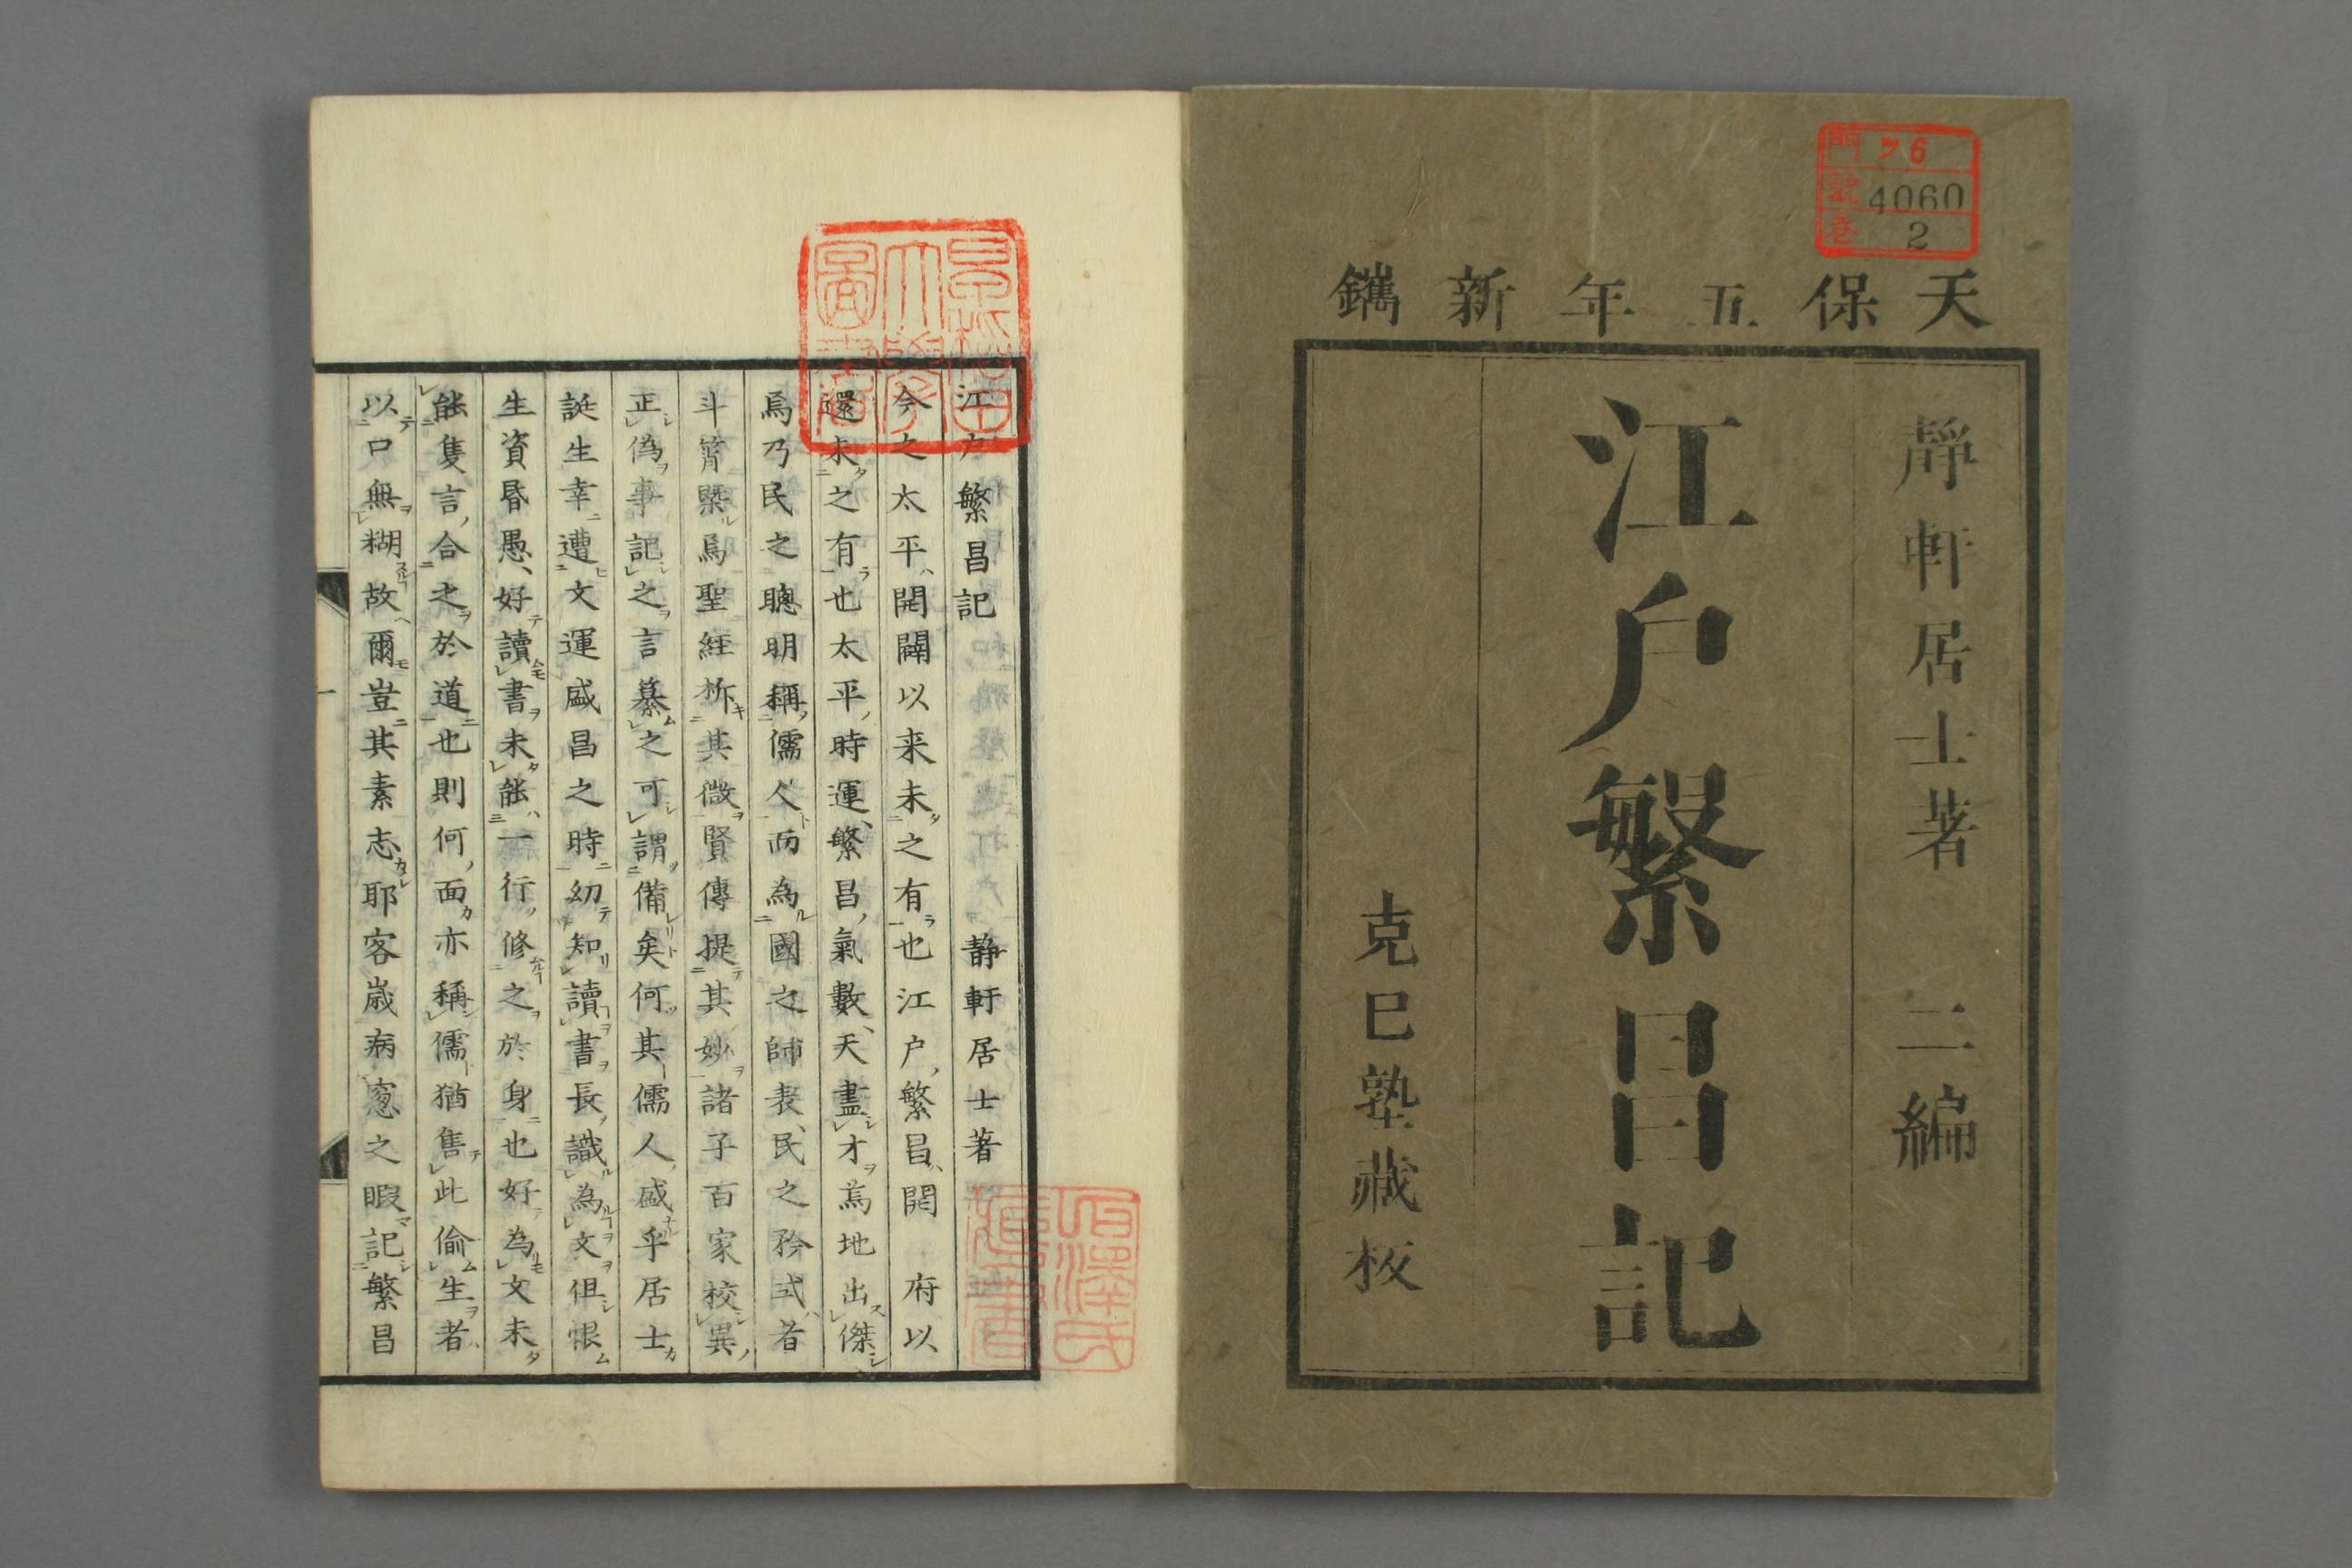 門 フ6
號 4060
巻 2
天保五年新鐫
靜軒居士著 二編
江戸繁昌記
克己塾藏板
江戸繁昌記 静軒居士著
今之太平開闢以来未之有也江戸繁昌開府以
還未之有也太平時運繁昌氣數天盡才焉地出傑
焉乃民之聰明稱儒人而為國之師表民之矜式者
斗筲槩焉聖經析其微賢傳提其妙諸子百家校異
正偽事記之言纂之可謂備矣何其儒人盛乎居士
誕生幸遭文運盛昌之時幼知讀書長識為文但恨
生資昏愚好讀書未能一行修之於身也好為文未
能隻言合之於道也則何面亦稱儒猶售此偷生者
以口無糊故爾豈其素志耶客歳病窓之暇記繁昌
一
早稲田大學圖書